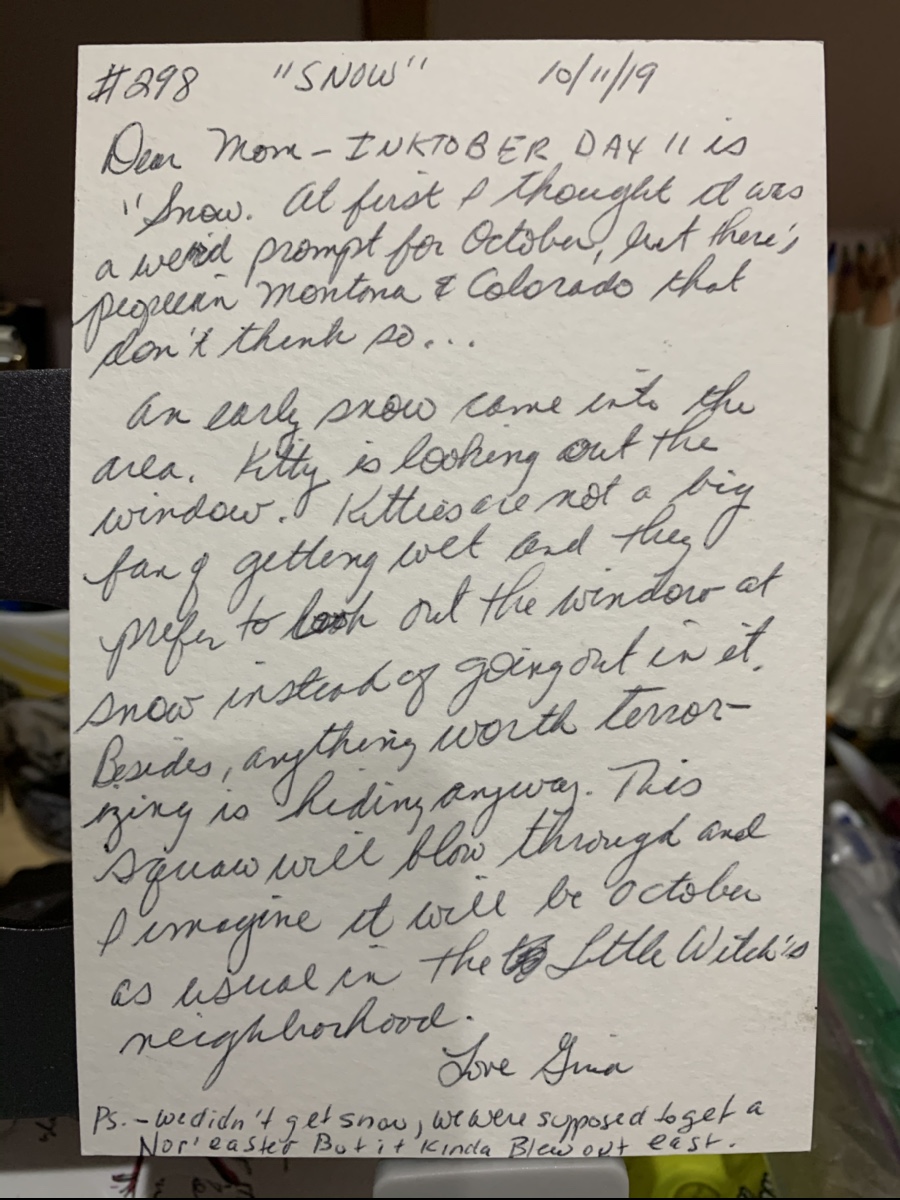 #298 "SNOW" 10/11/19
Dear Mom – INKTOBER DAY 11 is
"Snow. At first I thought it was
a weird prompt for October, but there's
people in Montana & Colorado that
don't think so...
An early snow came into the
area. Kitty is looking out the
window. Kitties are not a big
fan of getting wet and they
prefer to look out the window at
snow instead of going out in it.
Besides, anything worth terror-
izing is hiding anyway. This
squaw will blow through and
I imagine it will be October
as usual in the Little Witch's
neighborhood.
Love Gina
Ps. – we didn't get snow, we were supposed to get a
Nor'easter But it Kinda Blew out east.